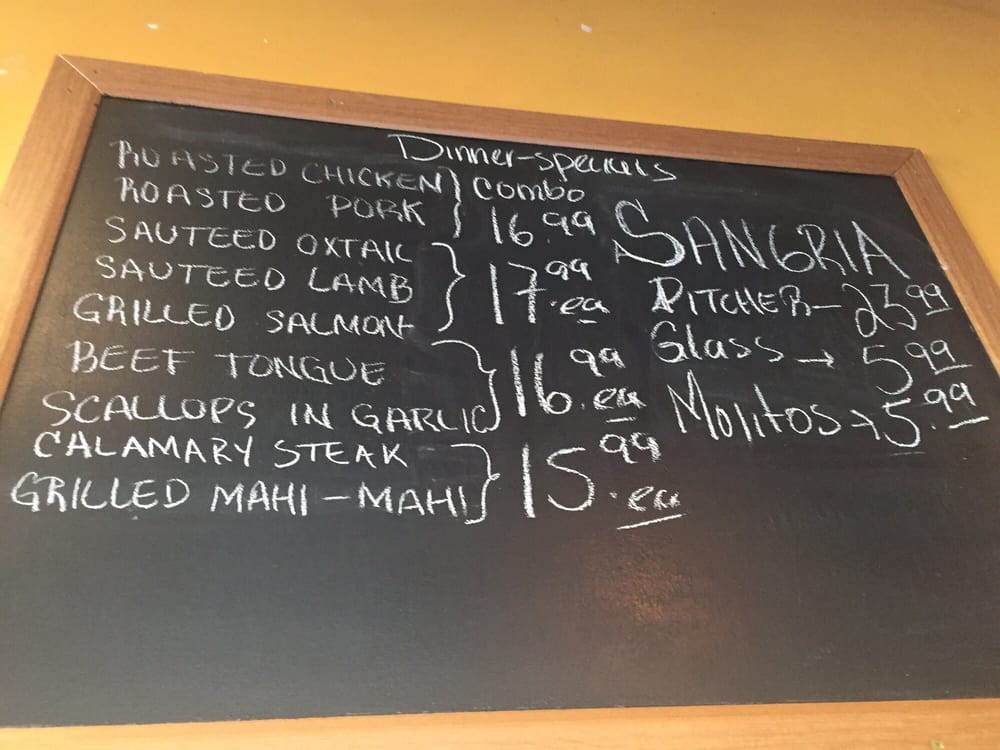 Dinner-specials
ROASTED CHICKEN } combo
ROASTED PORK } 16.99
SAUTEED OXTAIL
SAUTEED LAMB } 17.99 ea
GRILLED SALMON
BEEF TONGUE
SCALLOPS IN GARLIC } 16.99 ea
CALAMARY STEAK
GRILLED MAHI-MAHI } 15.99 ea
SANGRIA
PITCHER - 23.99
Glass → 5.99
Mojitos → 5.99